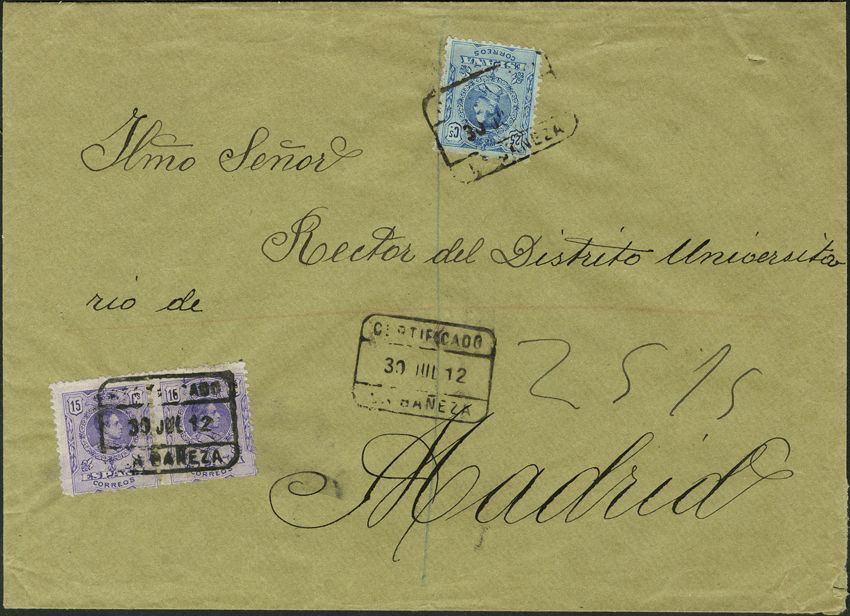 CORREOS
30 JUL
LA BAÑEZA
Ilmo Señor
Rector del Distrito Universita
rio de
CERTIFICADO
30 JUL 12
LA BAÑEZA
2515
Madrid
15 15
30 JUL 12
LA BAÑEZA
CORREOS CORREOS